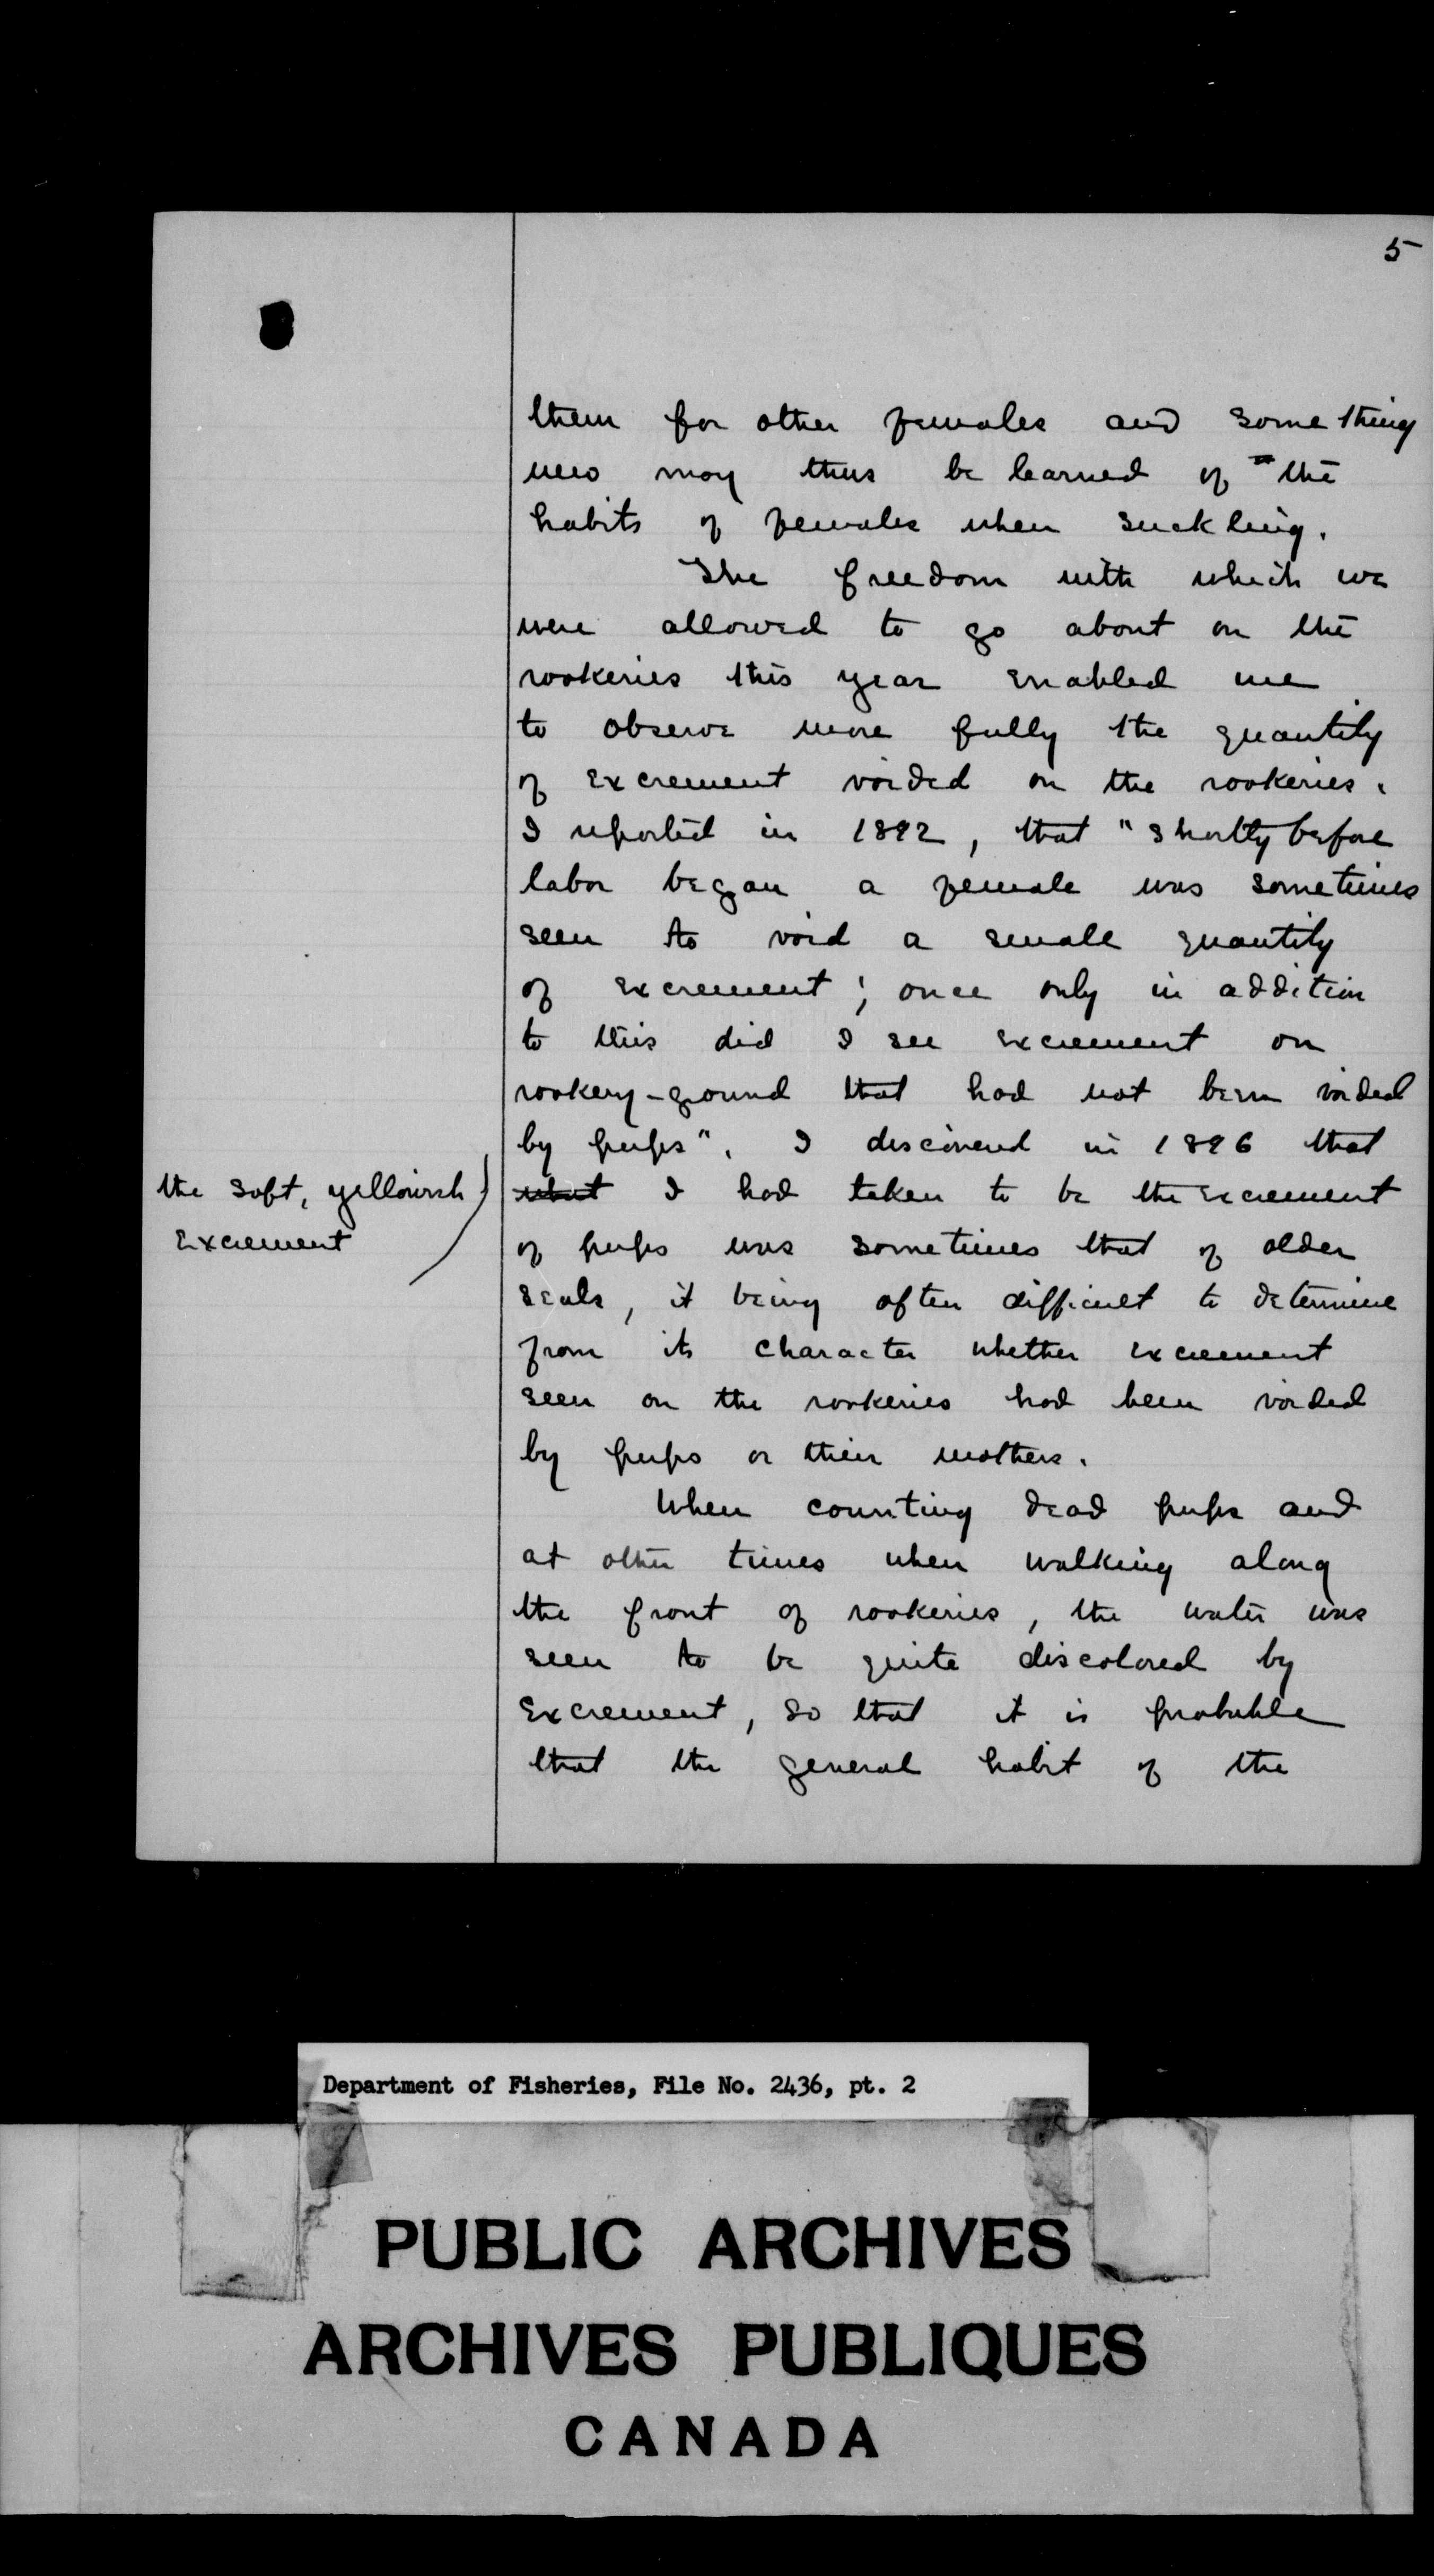 5
them for other females and something
new may thus be learned of the
habits of females when suckling.
The freedom with which we
were allowed to go about on the
rookeries this year enabled me
to observe more fully the quantity
of excrement voided on the rookeries.
I reported in 1892, that "shortly before
labor began a female was sometimes
seen to void a small quantity
of excrement; once only in addition
to this did I see excrement on
rookery-ground that had not been voided
by pups". I discovered in 1896 that
the soft, yellowish
excrement
what I had taken to be the excrement
of pups was sometimes that of older
seals, it being often difficult to determine
from its character whether excrement
seen on the rookeries had been voided
by pups or their mothers.
When counting dead pups and
at other times when walking along
the front of rookeries, the water was
seen to be quite discolored by
excrement, so that it is probable
that the general habit of the
Department of Fisheries, File No. 2436, pt. 2
PUBLIC ARCHIVES
ARCHIVES PUBLIQUES
CANADA